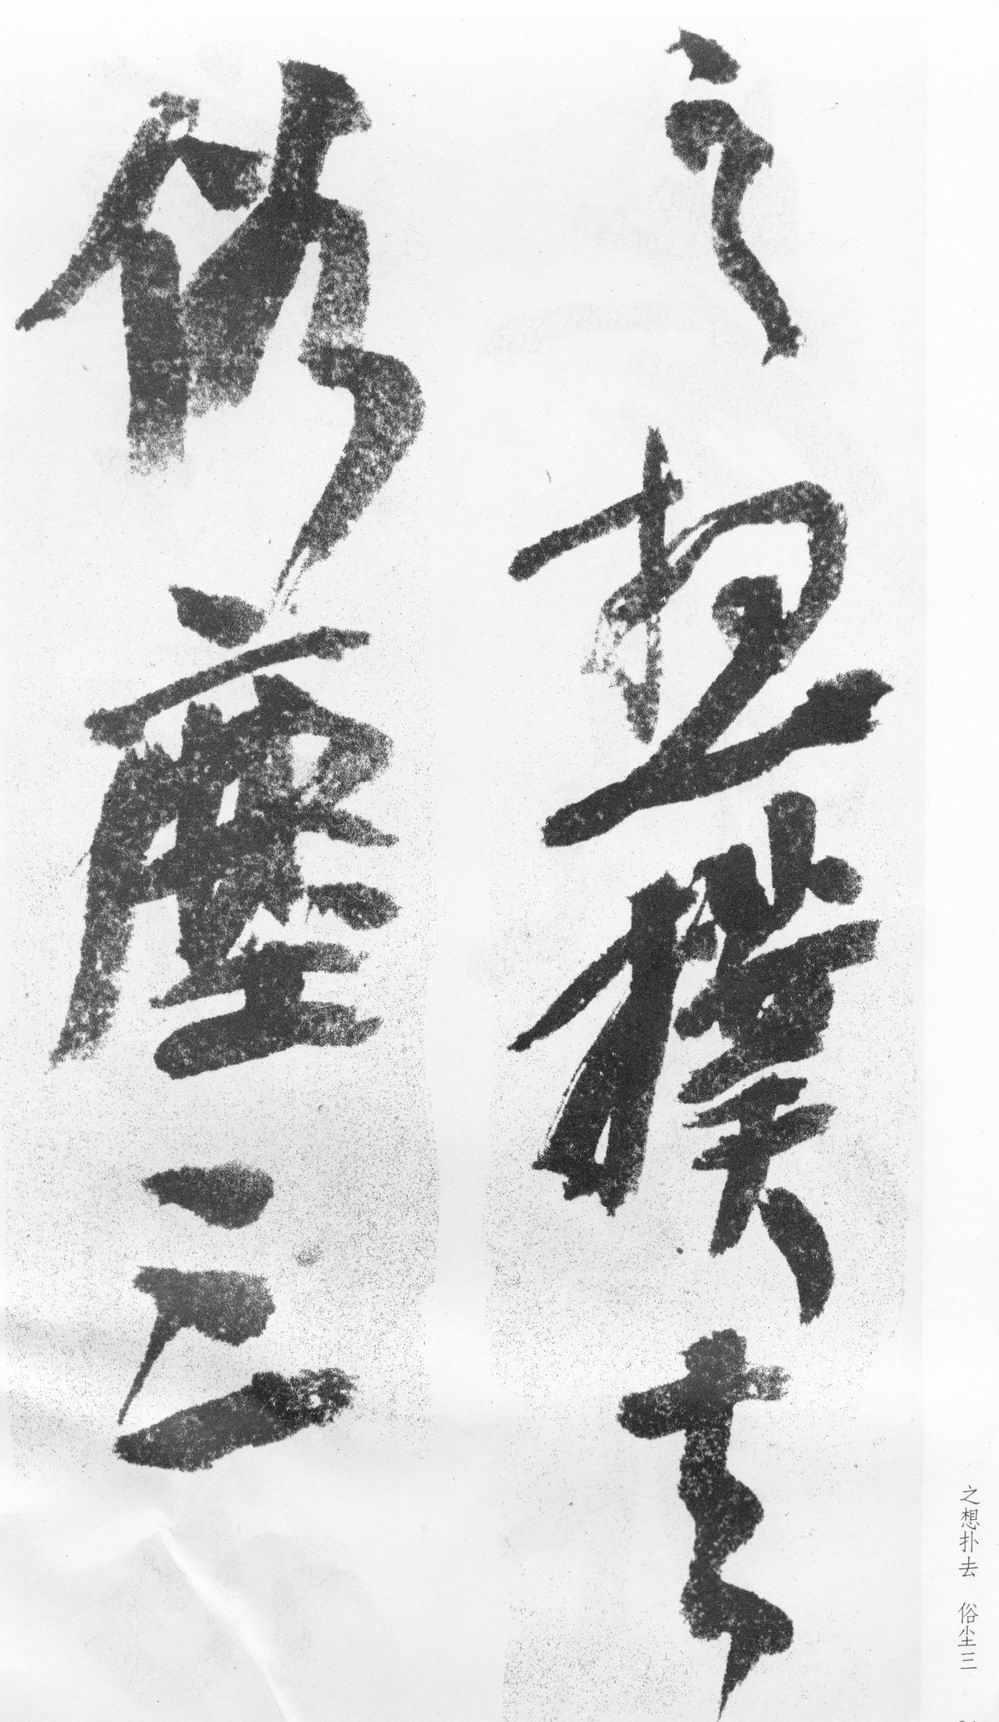 之想撲去
俗塵三
之想扑去 俗尘三